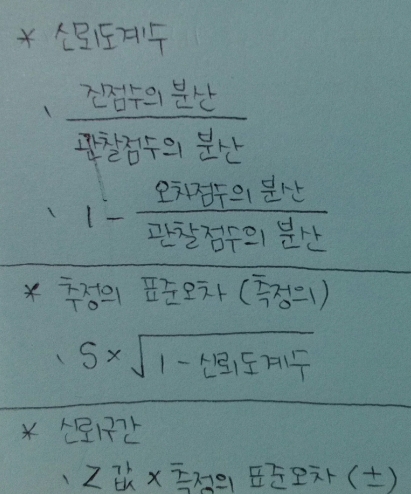 * 신뢰도계수
、 진점수의 분산
관찰점수의 분산
、 1 - 오차점수의 분산
관찰점수의 분산
* 추정의 표준오차 (측정의)
、 S × √1 - 신뢰도계수
* 신뢰구간
、 Z 값 × 측정의 표준오차 (±)